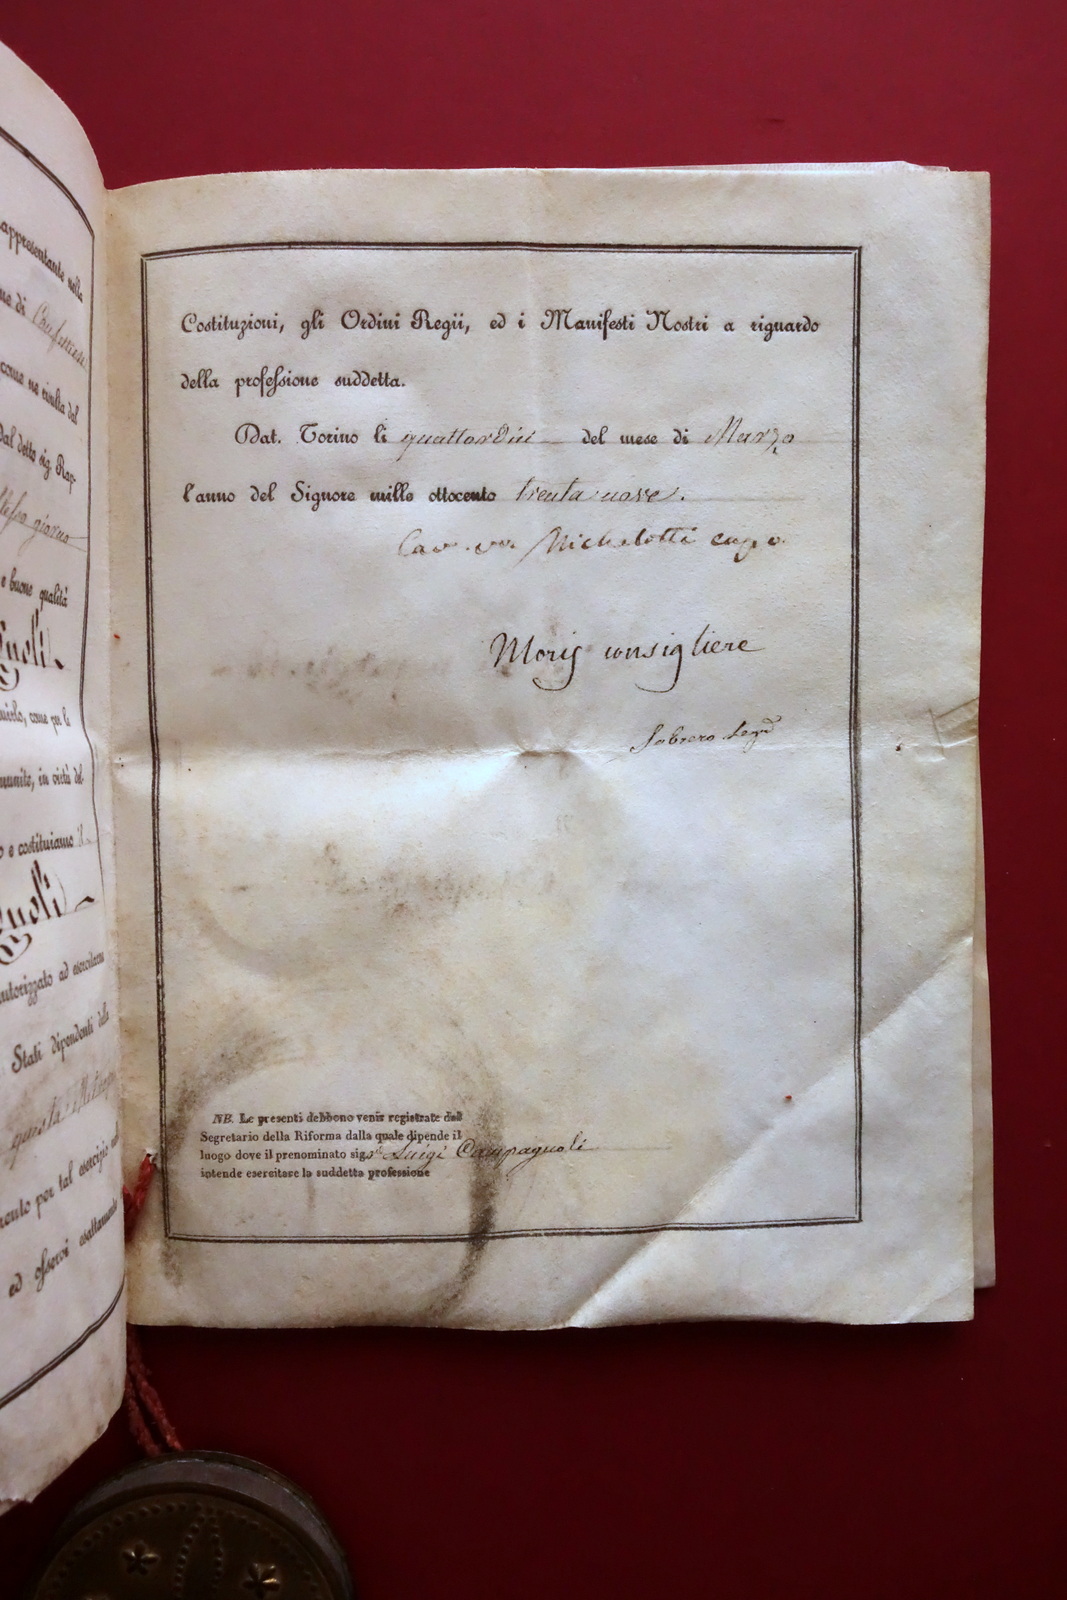 appresentante nella
ne di Confettiere
come ne risulta dal
dal detto sig. Rap-
stesso giorno
e buone qualità
gnoli
come per le
munito, in virtù del
o e costituiamo il
gnoli
autorizzato ad esercitare
Stati dipendenti dalla
questa
per tal esercizio
ed osservi esattamente
Costituzioni, gli Ordini Regii, ed i Manifesti Nostri a riguardo
della professione suddetta.
Dat. Torino li quattordici del mese di Marzo
l'anno del Signore mille ottocento trenta nove.
Cav. Michelotti capo
Moris consigliere
Sobrero Segr.
NB. Le presenti debbono venir registrate dal
Segretario della Riforma dalla quale dipende il
luogo dove il prenominato sig.r Luigi Campagnoli
intende esercitare la suddetta professione